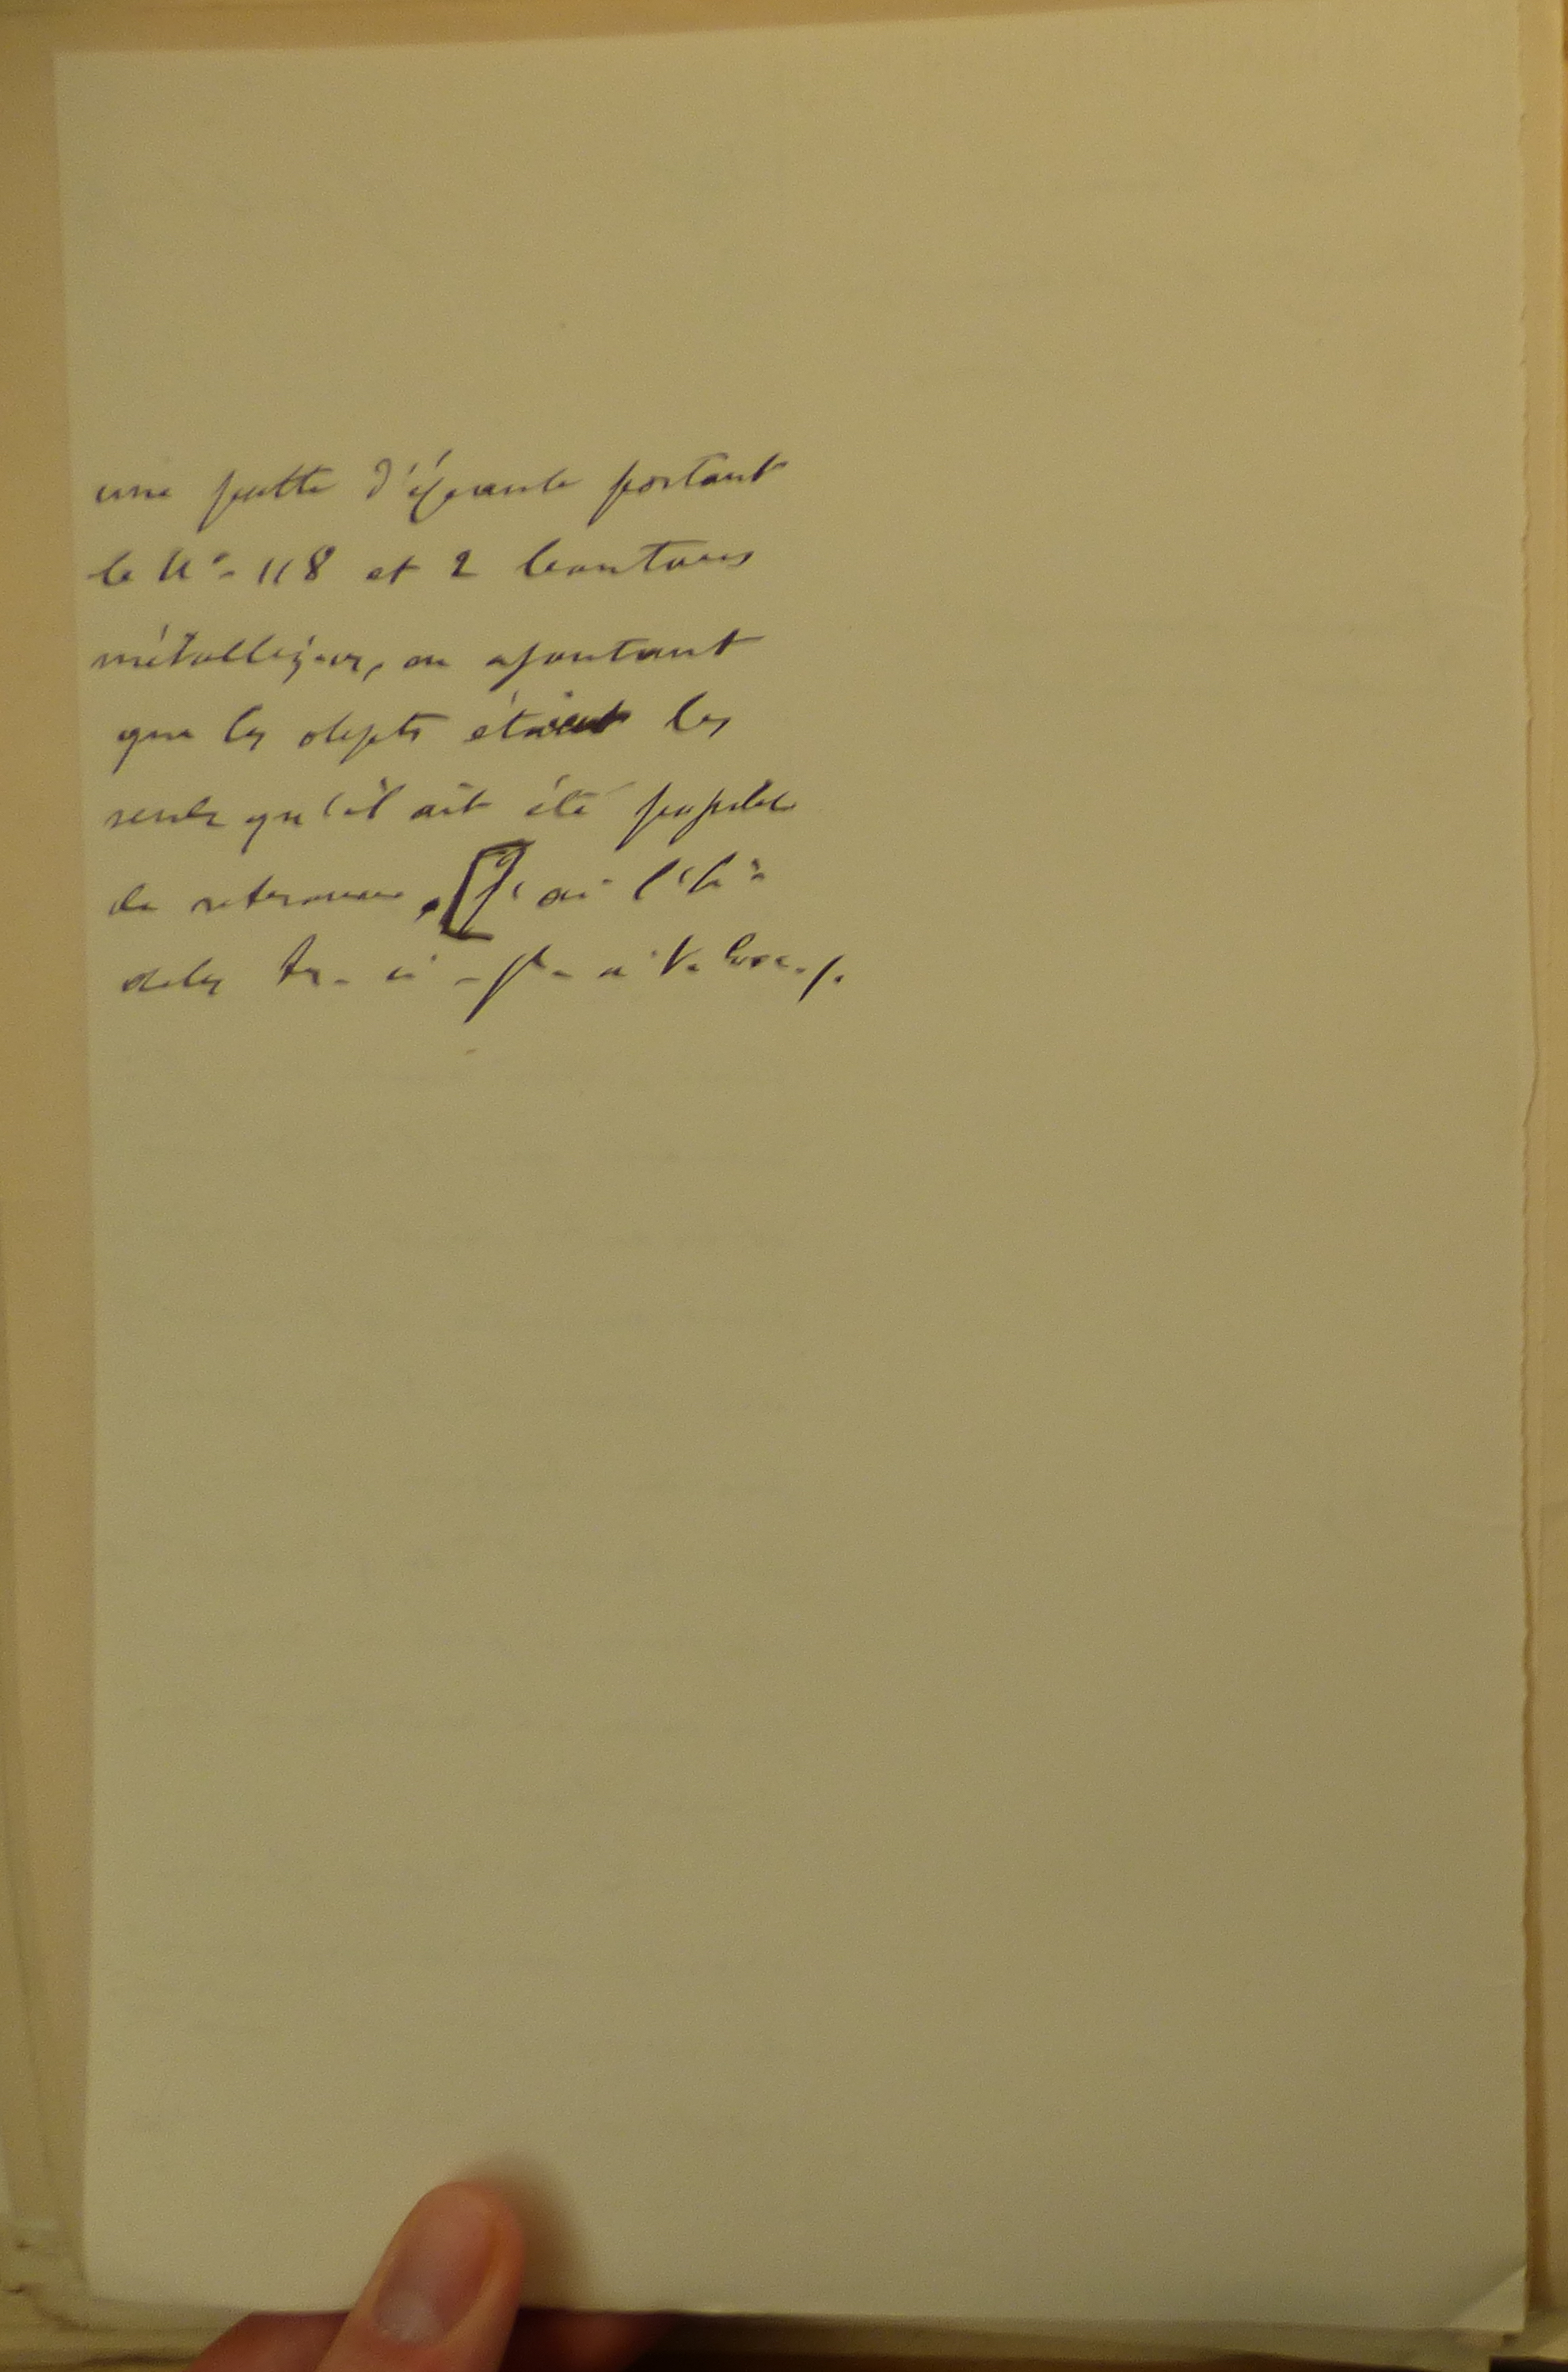 une patte d'épaule portant
le N° - 118 et 2 boutons
métalliques, en ajoutant
que les objets étaient les
seuls qu'il ait été possible
de retrouver. [J'ai l'h
de les tr